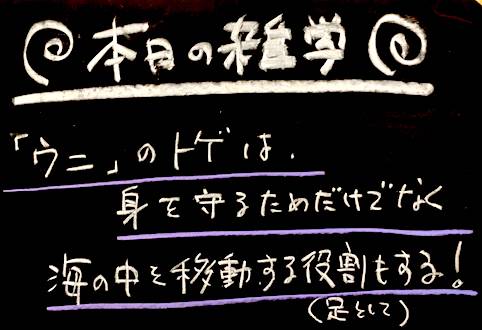 本日の雑学
「ウニ」のトゲは、
身を守るためだけでなく
海の中を移動する役割もする!
(足として)